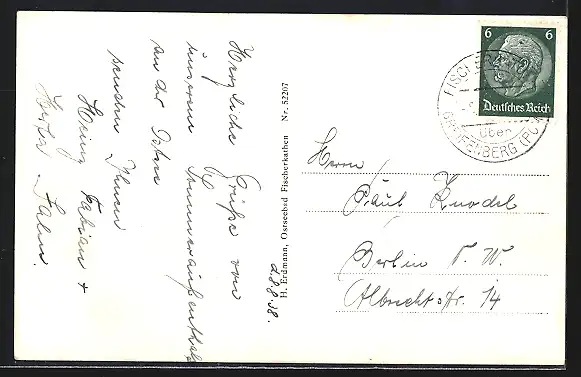 Herzliche Grüße von
unserem Sommeraufenthalt
an der Ostsee
senden Ihnen
Heinz Fabian +
Herta Salm.
d. 8.8.38.
H. Erdmann, Ostseebad Fischerkathen Nr. 52207
6 6
Deutsches Reich
über
GREIFENBERG (POM
Herrn
Paul Knodel
Berlin N. W.
Albrechtstr. 14